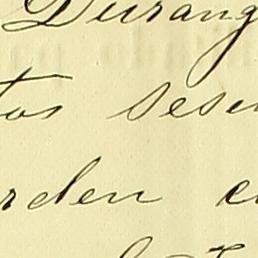 Durang
tos sese
rden e